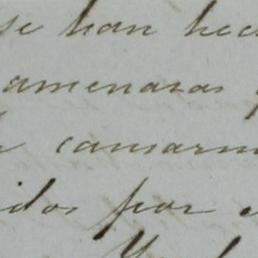 se han hec
amenazas
cansarn
idos por